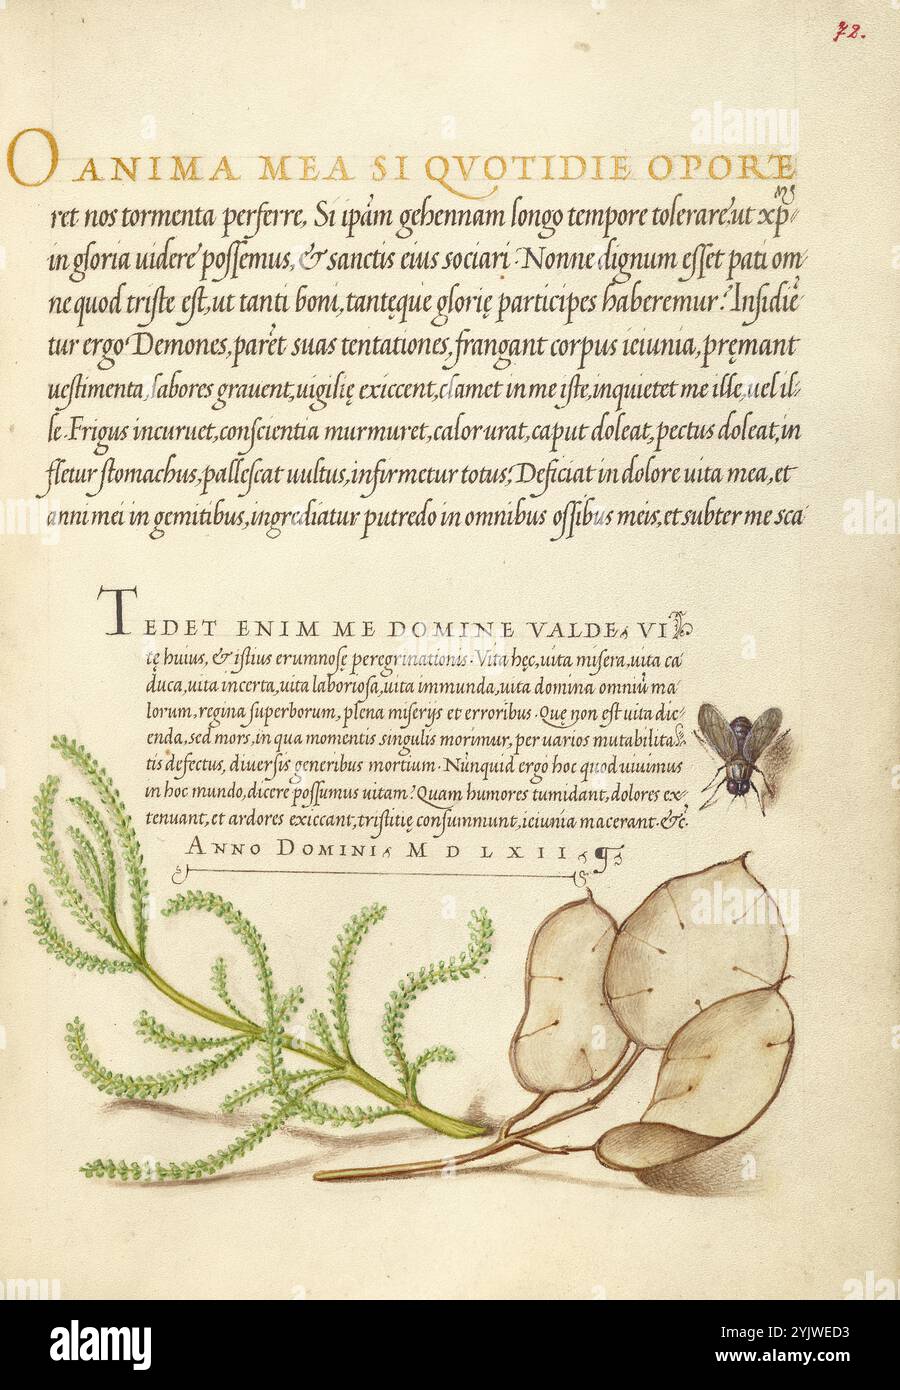 72.
O ANIMA MEA SI QVOTIDIE OPORE
ret nos tormenta perferre, Si ipãm gehennam longo tempore tolerare, ut xp̃m
in gloria uidere possemus, & sanctis eius sociari · Nonne dignum esset pati om-
ne quod triste est, ut tanti boni, tantęque glorię participes haberemur? Insidiẽ
tur ergo Demones, parẽt suas tentationes, frangant corpus ieiunia, pręmant
uestimenta, labores grauent, uigilię exiccent, clamet in me iste, inquietet me ille, uel il-
le · Frigus incuruet, conscientia murmuret, calor urat, caput doleat, pectus doleat, in
fletur stomachus, pallescat uultus, infirmetur totus, Deficiat in dolore uita mea, et
anni mei in gemitibus, ingrediatur putredo in omnibus ossibus meis, et subter me sca
TEDET ENIM ME DOMINE VALDE, VI
tę huius, & istius erumnosę peregrinationis · Vita hęc, uita misera, uita ca
duca, uita incerta, uita laboriosa, uita immunda, uita domina omniũ ma-
lorum, regina superborum, plena miserijs et erroribus · Quę non est uita dic-
enda, sed mors, in qua momentis singulis morimur, per uarios mutabilita-
tis defectus, diuersis generibus mortium · Nunquid ergo hoc quod uiuimus
in hoc mundo, dicere possumus uitam? Quam humores tumidant, dolores ex-
tenuant, et ardores exiccant, tristitię consummunt, ieiunia macerant · &c̃·
ANNO DOMINI, M D LXII,
alamy
alamy
alamy
alamy
Image ID: 2YJWED3
www.alamy.com